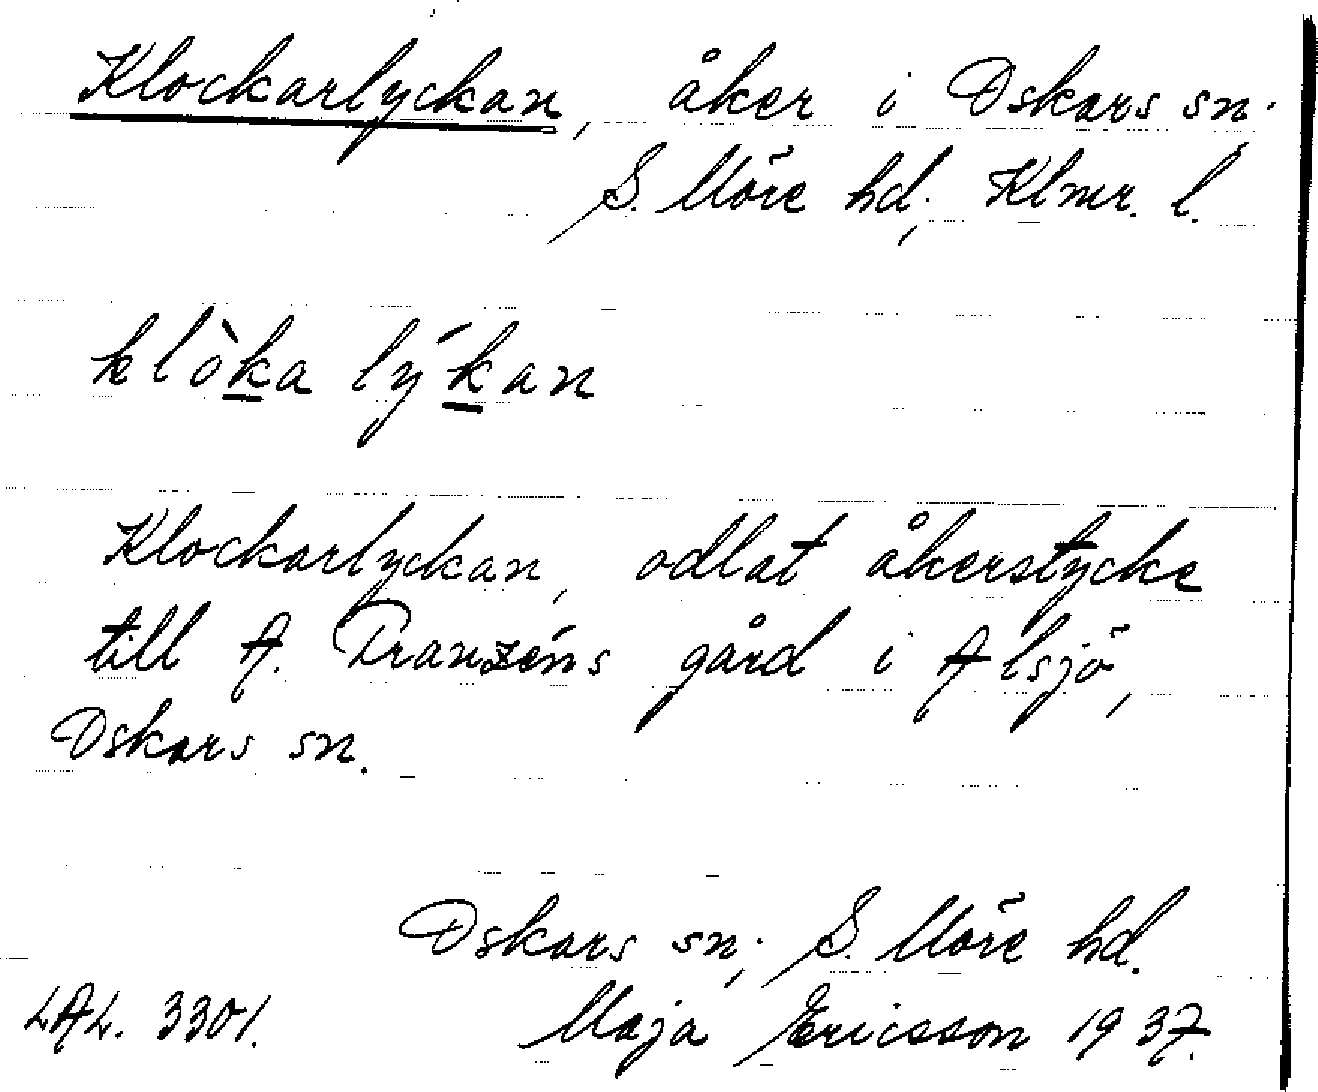 Klockarlyckan, åker i Oskars sn.
S. Möre hd., Klmr. l.
klòka lýkan
Klockarlyckan, odlat åkerstycke
till A. Franzéns gård i Alsjö,
Oskars sn.
Oskars sn., S. Möre hd.
LAL. 3301. Maja Ericsson 1937.